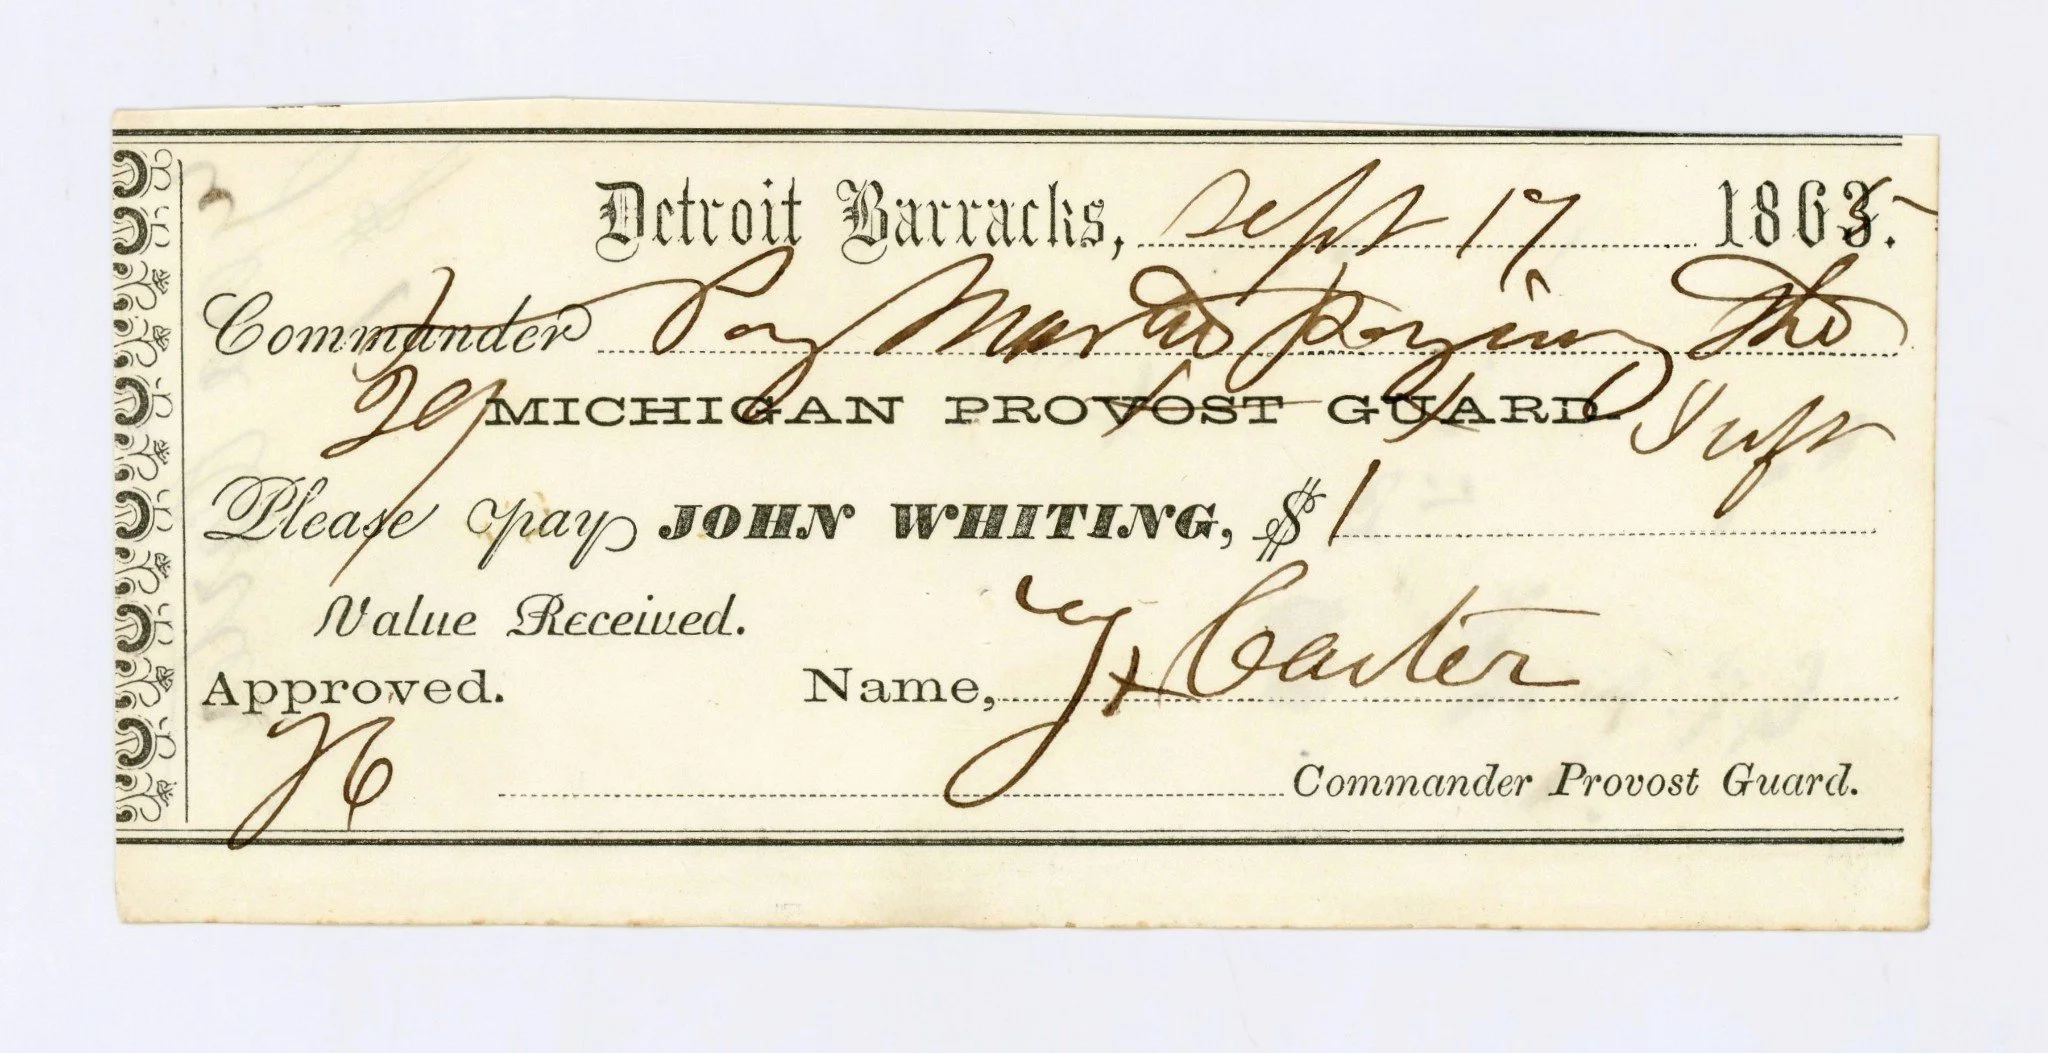 Detroit Barracks, Sept 17 1865.
Commander Pay Master Paying The
29 MICHIGAN PROVOST GUARD
Please pay JOHN WHITING, $1
Value Received.
Approved. Name, Carter
Commander Provost Guard.